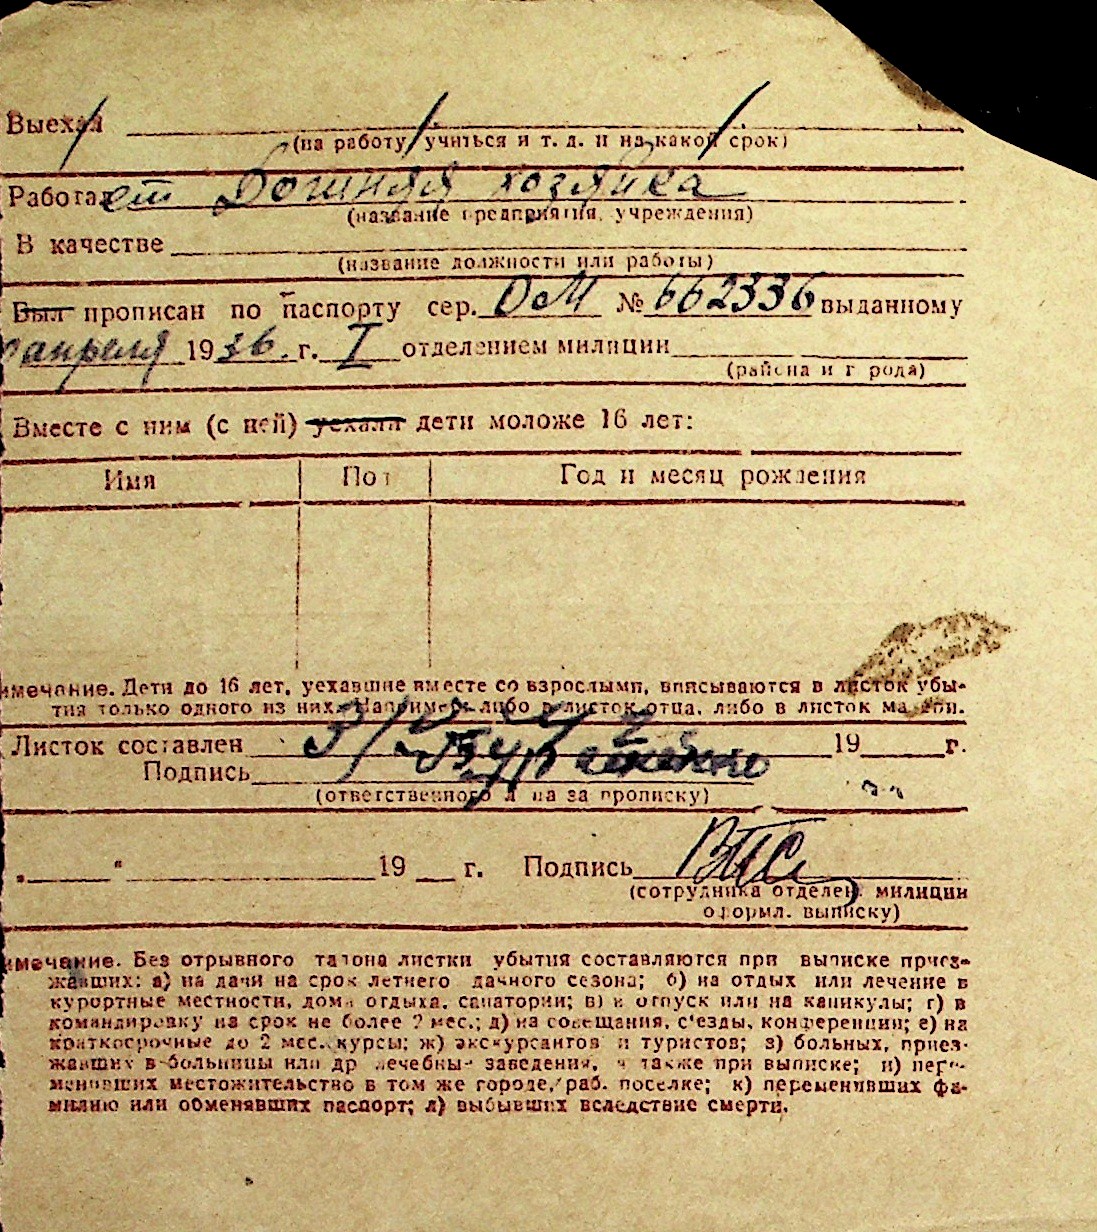 Выехал
(на работу, учиться и т. д. и на какой срок)
Работает Домашняя хозяйка
(название предприятия, учреждения)
В качестве
(название должности или работы)
Был прописан по паспорту сер. ОМ № 662336 выданному
апреля 1936. г. I отделением милиции
(района и города)
Вместе с ним (с ней) уехали дети моложе 16 лет:
Имя Пол Год и месяц рождения
имечание. Дети до 16 лет, уехавшие вместе со взрослыми, вписываются в листок убы-
тия только одного из них. Например: либо в листок отца, либо в листок матери.
Листок составлен 19 г.
Подпись
(ответственного лица за прописку)
„ “ 19 г. Подпись
(сотрудника отделен. милиции
оформл. выписку)
имечание. Без отрывного талона листки убытия составляются при выписке приез-
жавших: а) на дачи на срок летнего дачного сезона; б) на отдых или лечение в
курортные местности, дома отдыха, санатории; в) в отпуск или на каникулы; г) в
командировку на срок не более 2 мес.; д) на совещания, с'езды, конференции; е) на
краткосрочные до 2 мес. курсы; ж) экскурсантов и туристов; з) больных, приез-
жавших в больницы или др лечебные заведения, а также при выписке; и) пере-
менивших местожительство в том же городе, раб. поселке; к) переменивших фа-
милию или обменявших паспорт; л) выбывших вследствие смерти.